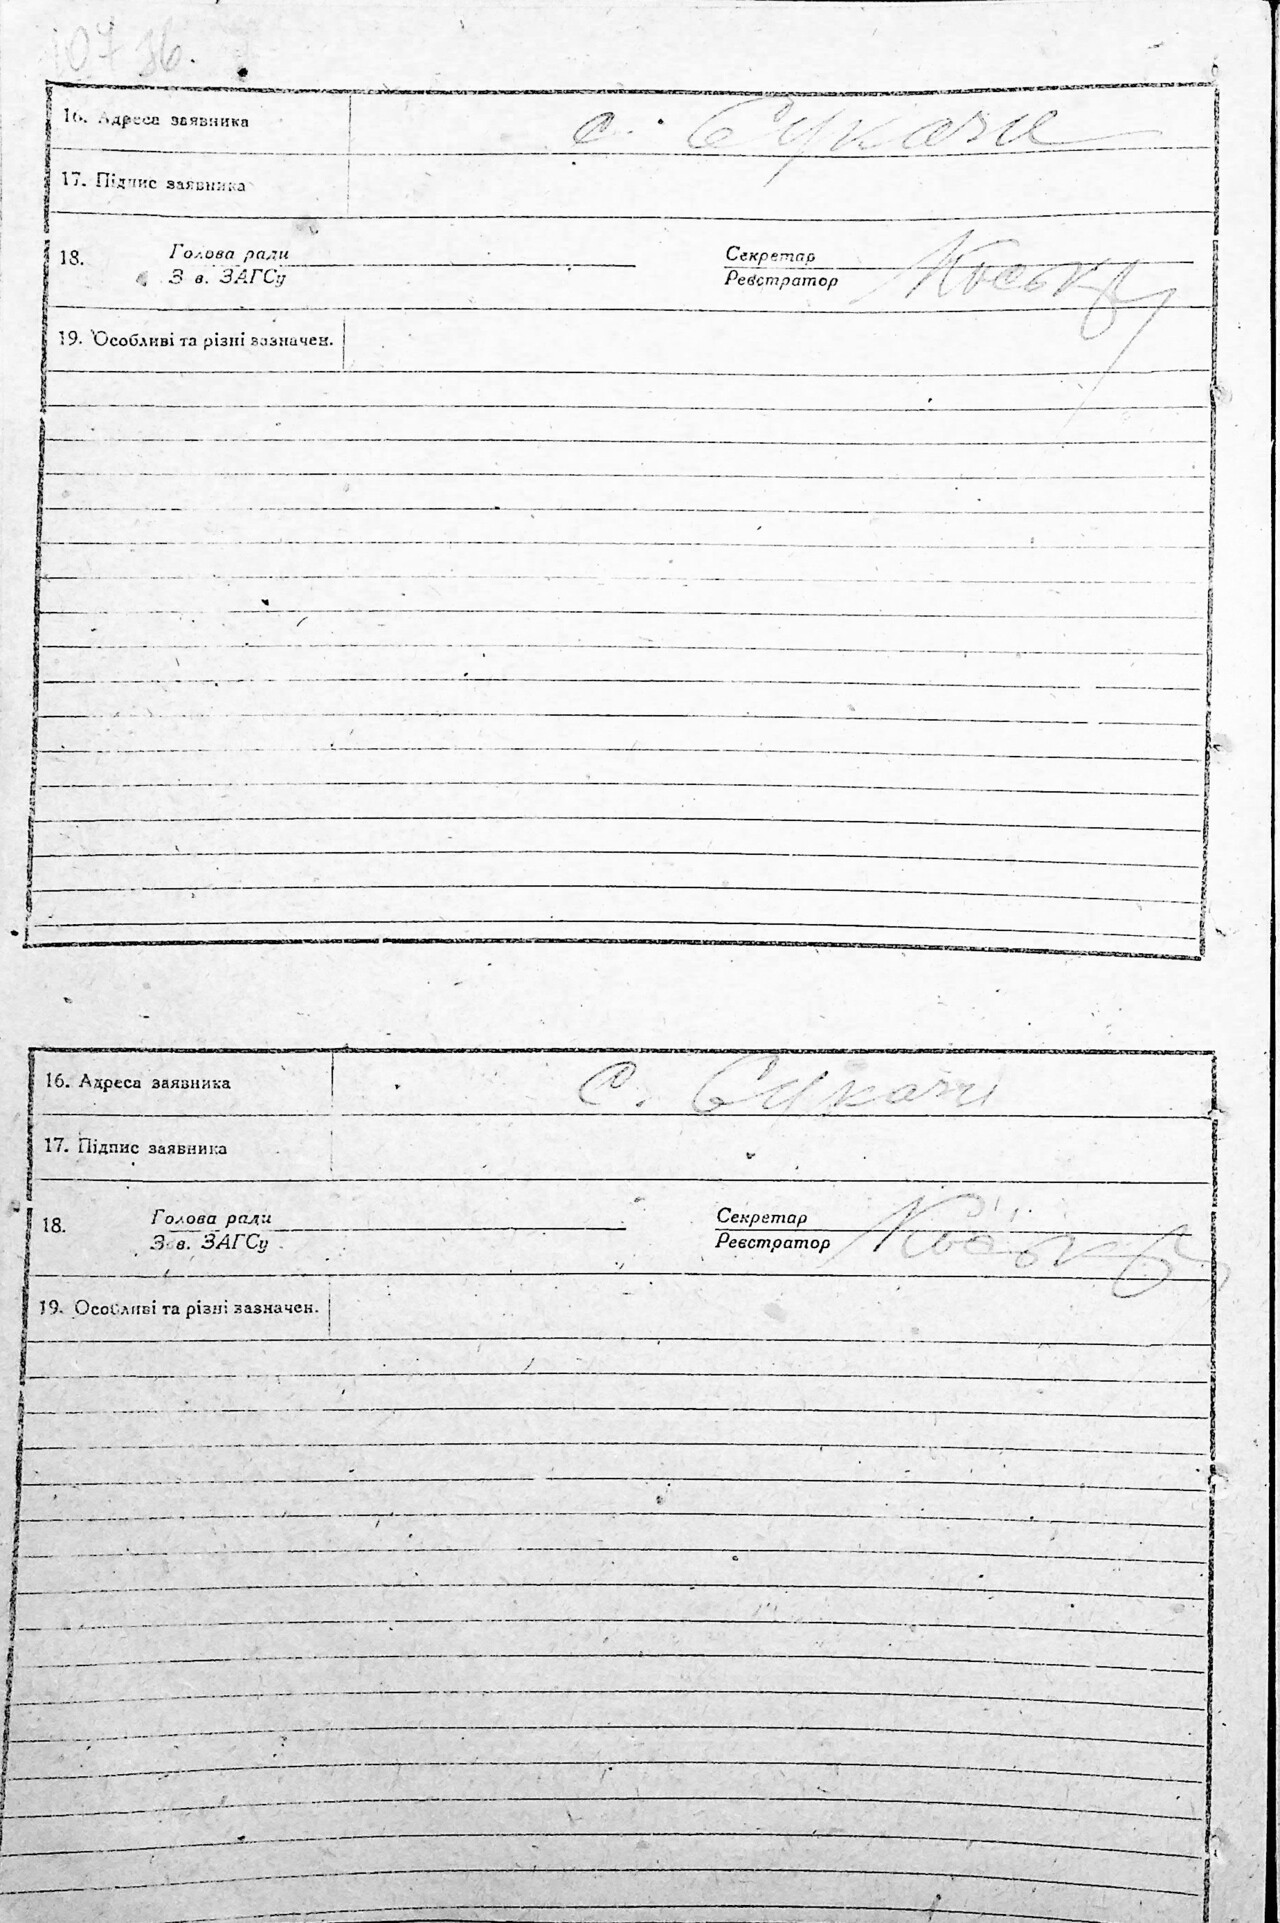 10736.
16. Адреса заявника с. Сукачи
17. Підпис заявника
18. Голова ради Секретар
З в. ЗАГСу Реєстратор
19. Особливі та різні зазначен.
16. Адреса заявника С. Сукачи
17. Підпис заявника
18. Голова ради Секретар
Зав. ЗАГСу Реєстратор
19. Особливі та різні зазначен.